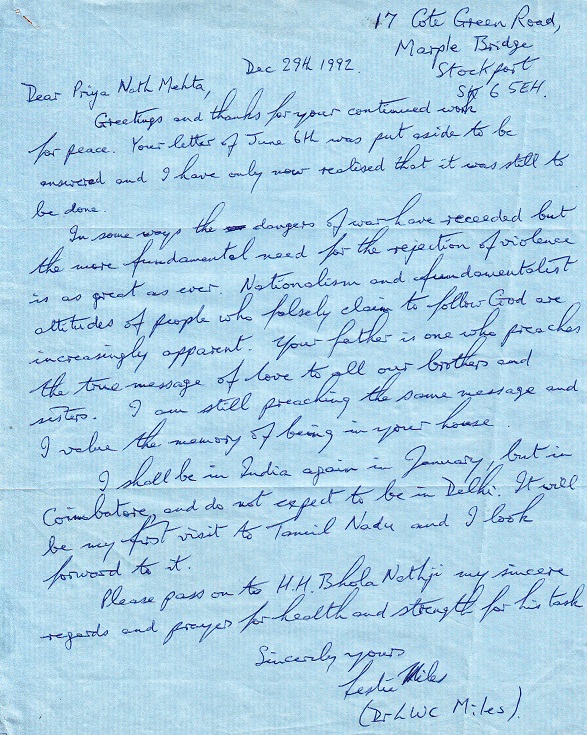 17 Cote Green Road,
Marple Bridge
Stockport
SK6 5EH.
Dec 29th 1992.
Dear Priya Nath Mehta,
Greetings and thanks for your continued work
for peace. Your letter of June 6th was put aside to be
answered and I have only now realised that it was still to
be done.
In some ways the dangers of war have receeded but
the more fundamental need for the rejection of violence
is as great as ever. Nationalism and fundamentalist
attitudes of people who falsely claim to follow God are
increasingly apparent. Your father is one who preaches
the true message of love to all our brothers and
sisters. I am still preaching the same message and
I value the memory of being in your house.
I shall be in India again in January, but in
Coimbatore, and do not expect to be in Delhi. It will
be my first visit to Tamil Nadu and I look
forward to it.
Please pass on to H.H. Bhola Nathji my sincere
regards and prayer for health and strength for his task
Sincerely yours
Leslie Miles
(Dr LWC Miles).